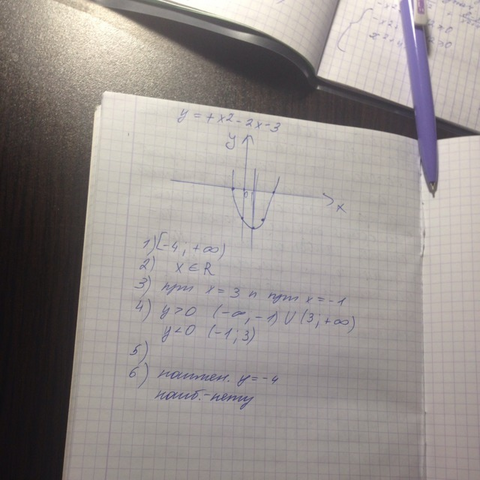 y = +x2-2x-3
y
x
1) [-4, +∞)
2) x ∈ R
3) при x = 3 и при x = -1
4) y>0 (-∞, -1) U (3, +∞)
y<0 (-1; 3)
5)
6) наимен. y = -4
наиб.-нету